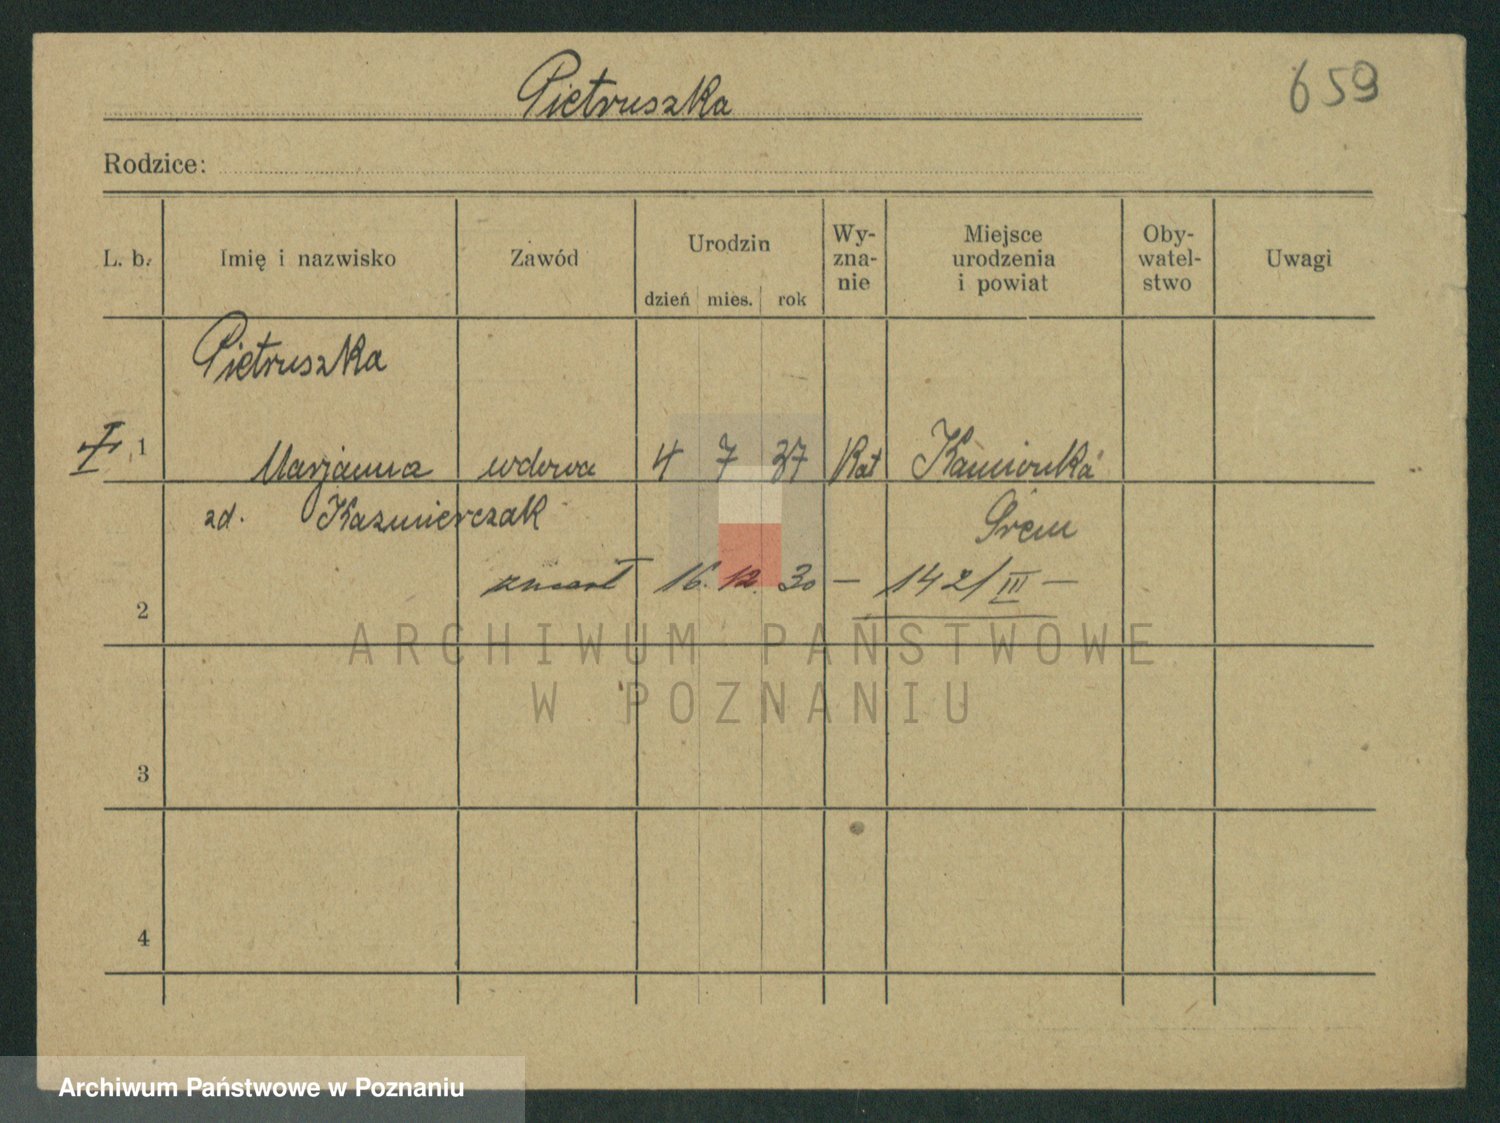 Pietruszka
659
Rodzice:
L. b. Imię i nazwisko Zawód Urodzin dzień mies. rok Wy-zna-nie Miejsce urodzenia i powiat Oby-watel-stwo Uwagi
Pietruszka
1 Marjanna wdowa 4 7 37 Kat Kamionka
zd. Kazmierczak Śrem
zmarł 16. 12. 30 — 142/III —
2
ARCHIWUM PAŃSTWOWE
W POZNANIU
3
4
Archiwum Państwowe w Poznaniu